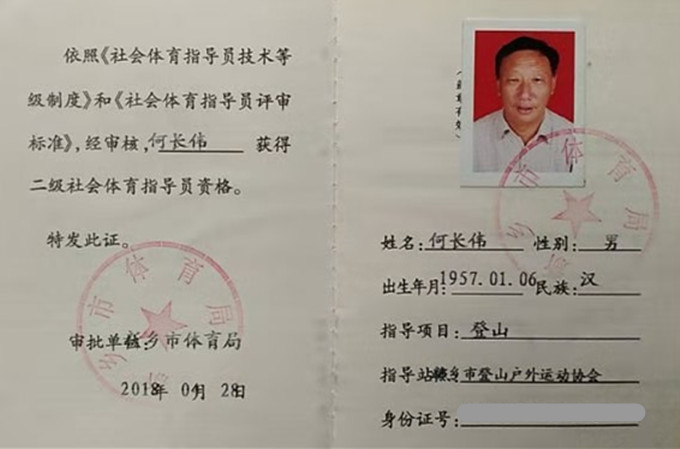 依照《社会体育指导员技术等
级制度》和《社会体育指导员评审
标准》,经审核,何长伟 获得
二级社会体育指导员资格。
特发此证。
审批单位:新乡市体育局
2018年 04月 28日
新乡市体育局
姓名:何长伟 性别:男
出生年月:1957.01.06 民族:汉
指导项目:登山
指导站:新乡市登山户外运动协会
身份证号:
乡市体育局